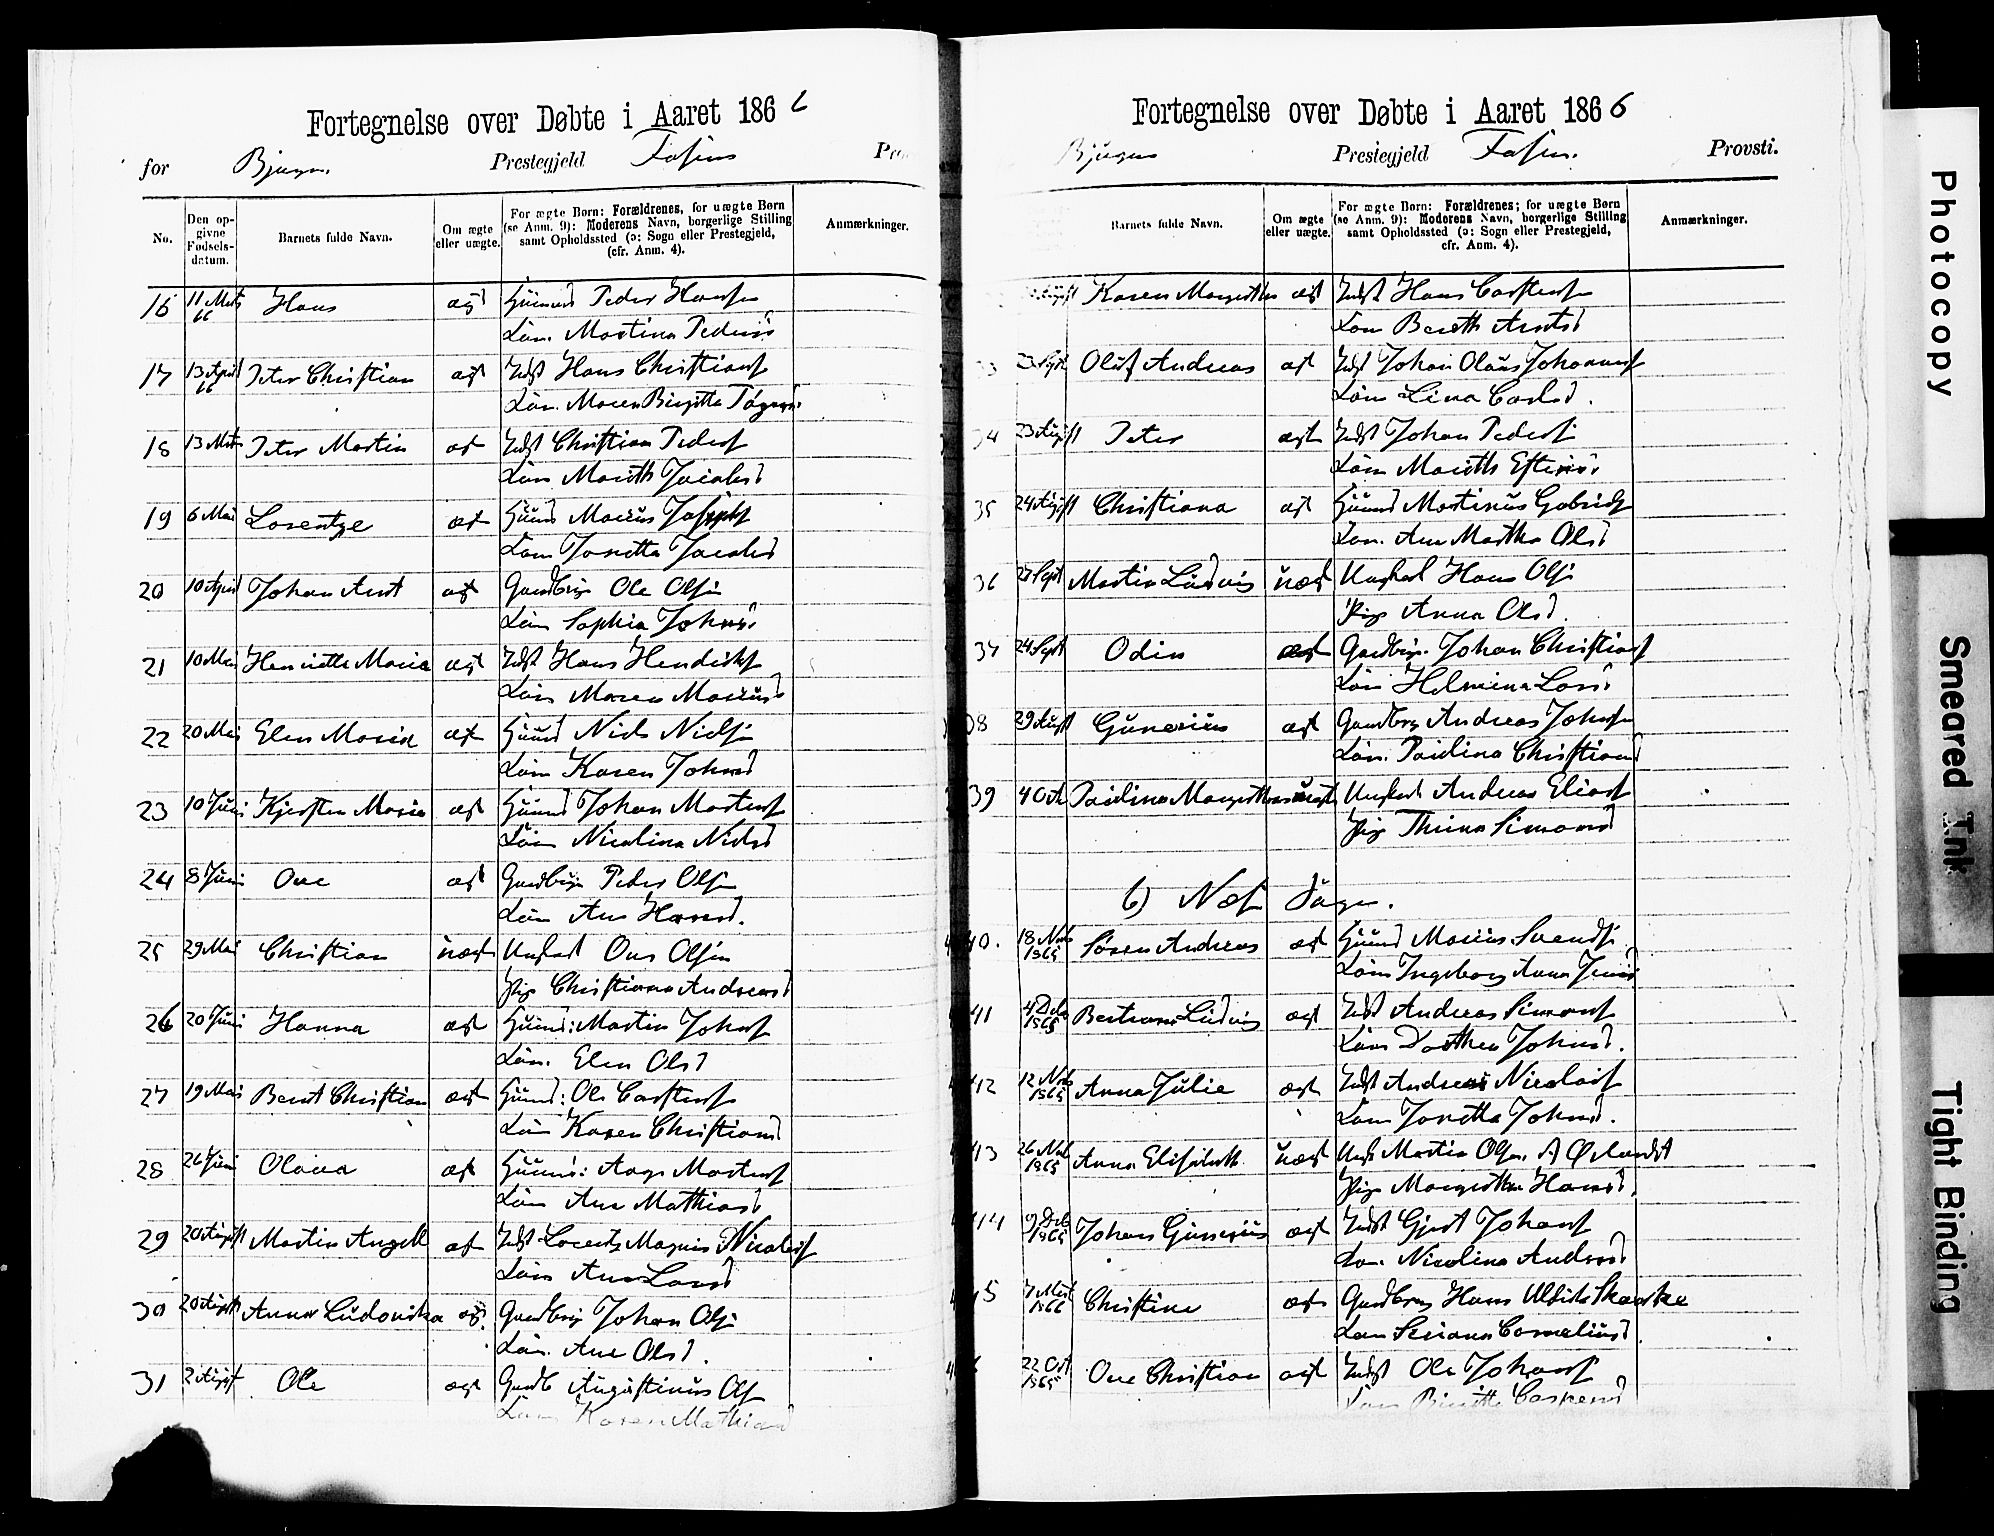 Fortegnelse over Døbte i Aaret 1866
for Bjugn Prestegjeld Fosens
No. Den opgivne Fødselsdatum. Barnets fulde Navn. Om ægte eller uægte. For ægte Børn: Forældrenes, for uægte Børn (se Anm. 9): Moderens Navn, borgerlige Stilling samt Opholdssted (ɔ: Sogn eller Prestegjeld, cfr. Anm. 4). Anmærkninger.
16 11 Mrts 66 Hans ægt Huusmd Peder Hansen
Kon. Martina Pedersd
17 13 April 66 Peter Christian ægt Indst Hans Christians
Kon. Maren Birgitta
18 13 Mrts Peter Martin ægt Indst Christian Peders
Kon Marith Jacobsd
19 6 Mai Lorentze ægt Huusmd Marius Josephs
Kon Jonetta Jacobsd
20 10 April Johan Arnt ægt Gaardbrgr Ole Olsen
Kon Sophia Johnsd
21 10 Mai Henriette Maria ægt Indst Hans Hendriks
Kon Maren Mariusd
22 20 Mai Elen Maria ægt Huusmd Niels Nielsen
Kon Karen Johnsd
23 10 Juni Kjersten Maria ægt Huusmd Johan Mortens
Kon Nicolina Nielsd
24 8 Juni Ove ægt Gaardbrgr Peder Olsen
Kon Ane Hansd.
25 29 Mai Christian uægt Ungkarl Ous Olsen
Pige Christiana Andreasd
26 20 Juni Hanna ægt Huusmd: Martin Johns
Kon. Elen Olsd
27 19 Mai Berut Christian ægt Huusmd: Ole Carstens
Kon Karen Christiansd
28 26 Juni Olava ægt Huusmd: Aage Mortens
Kon Ane Mathiasd
29 20 August Martin Angell ægt Indst Lorents Magnus Nicolais
Kon Ane Larsd
30 20 August Anna Ludovika ægt. Gaardbrgr Johan Olsen
Kon. Ane Olsd.
31 2 August Ole ægt Gaardb Augustinus Ols
Kon Karen Mathiasd
Fortegnelse over Døbte i Aaret 1866
Bjugns Prestegjeld Fosen. Provsti.
Barnets fulde Navn. Om ægte eller uægte. For ægte Børn: Forældrenes; for uægte Børn (se Anm. 9): Moderens Navn, borgerlige Stilling samt Opholdssted (ɔ: Sogn eller Prestegjeld, cfr. Anm. 4). Anmærkninger.
Karen Margrethe ægt Indst Hans Carstens
Kon Bereth Arntsd
3 23 Sept Oluf Andreas ægt Indst Johan Olaus Johannes
Kon Lina Carlsd.
34 23 August Peter ægt Indst Johan Peders
Kon Marith
35 24 August Christiana ægt Huusmd Martinus Gabriels
Kon. Ane Martha Olsd
36 27 Sept Martin Ludvig uægt Ungkarl Hans Olsen
Pige Anna Olsd.
37 24 Sept Odin ægt Gaardbrgr. Johan Christians
Kon Helmina Larsd
38 29 August Gunerius ægt Gaardbrgr Andreas Johnsen
Kon. Paulina Christiansd
39 4 Oct Paulina Margrethe uægt Ungkarl Andreas Elias
Pige Thrina Simonsd
b) Næs Sogn.
40. 18 Nov 1865 Søren Andreas ægt Huusmd Marius Svends
Kon Ingeborg Anna Jensd
41 4 Decb 1865 Bertram Ludvig ægt Indst Andreas Simons
Kon Dorthea Johnsd.
42 12 Nov 1865 Anna Julie ægt Indst Andreas Nicolais
Kon Jonetta Johnsd.
43 26 Nov 1865 Anna Elisabeth uægt Ungk Martin Olsen, af Ørlandet
Pige Margrethe Hansd.
44 9 Deb 1865 Johan Gunerius ægt Indst Gjert Johans
Kon. Nicolina Andersd
45 7 Mrst 1866 Christine ægt Gaardbrgr Hans Ulfrik Skanke
Kon Seriana Corneliusd.
22 Oct 1865 Ove Christian ægt Indst Ole Johans
Kon Birgitte Caspersd
Photocopy
Smeared Ink
Tight Binding